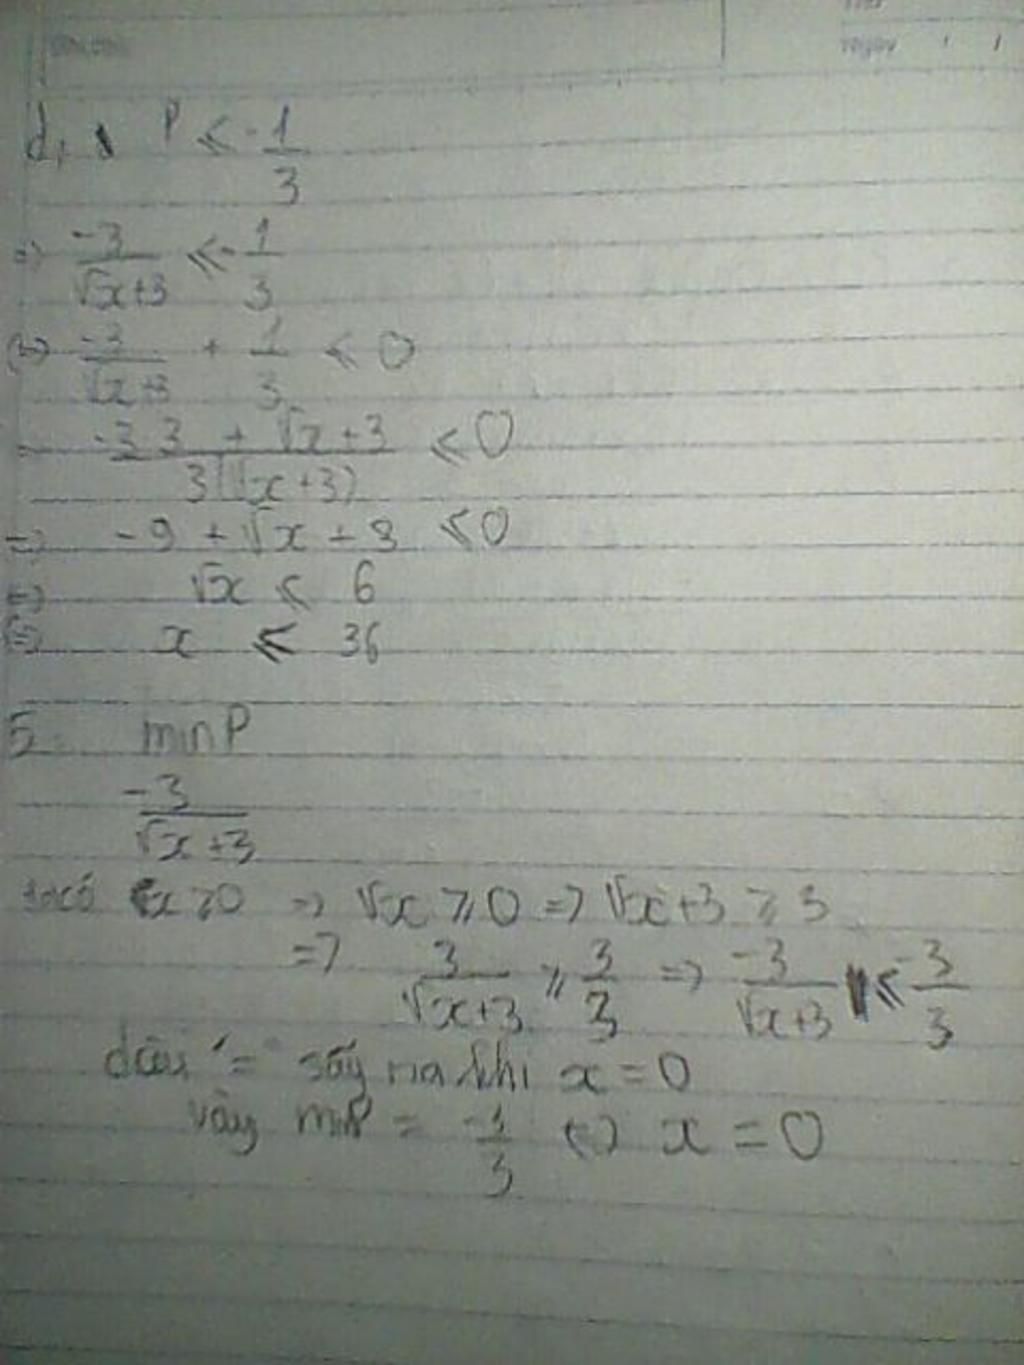 d, P ≤ -1/3
=> -3/(√x+3) ≤ -1/3
<=> -3/(√x+3) + 1/3 ≤ 0
(-3.3 + √x+3)/(3(√x+3)) ≤ 0
=> -9 + √x + 3 ≤ 0
=> √x ≤ 6
<=> x ≤ 36
5. min P
-3/(√x+3)
ta có x ≥ 0 => √x ≥ 0 => √x+3 ≥ 3
=> 3/(√x+3) ≥ 3/3 => -3/(√x+3) ≤ -3/3
dấu "=" sảy ra khi x = 0
vậy minP = -1/3 <=> x = 0